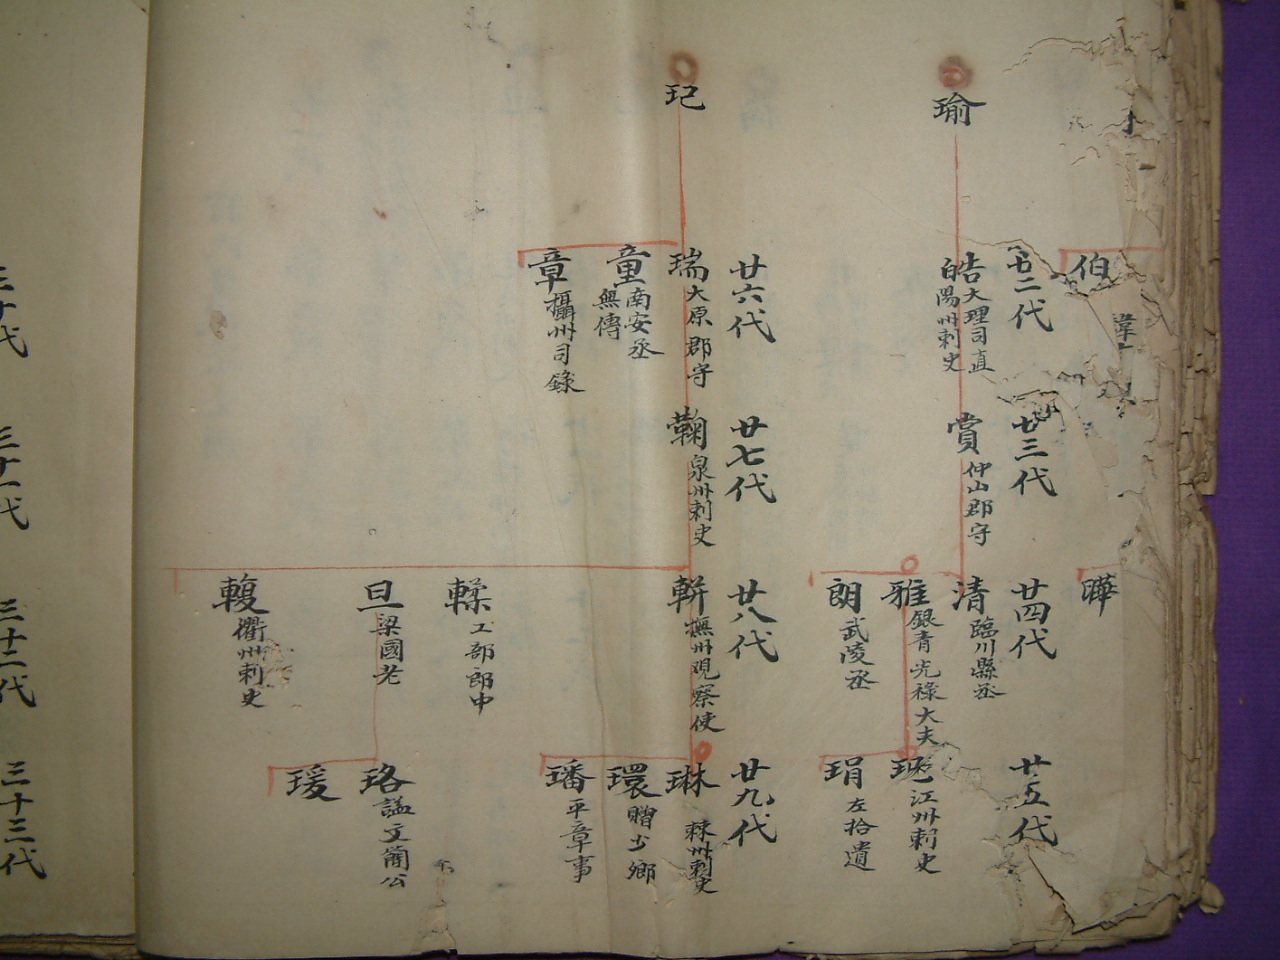 瑜
廿二代
皓 大理司直
陽州刺史
廿三代
賞 仲山郡守
廿四代
清 臨川縣丞
雅 銀青光祿大夫
朗 武陵丞
廿五代
江州刺史
琄 左拾遺
伯
瞱
玘
廿六代
瑞 太原郡守
童 南安丞
無傳
章 攝州司錄
廿七代
鞠 泉州刺史
廿八代
軿 撫州观察使
輮 工部郎中
旦 梁國老
輹 衢州刺史
廿九代
琳 棣州刺史
環 贈少卿
璠 平章事
珞 謚文簡公
瑗
三十代
三十一代
三十二代
三十三代